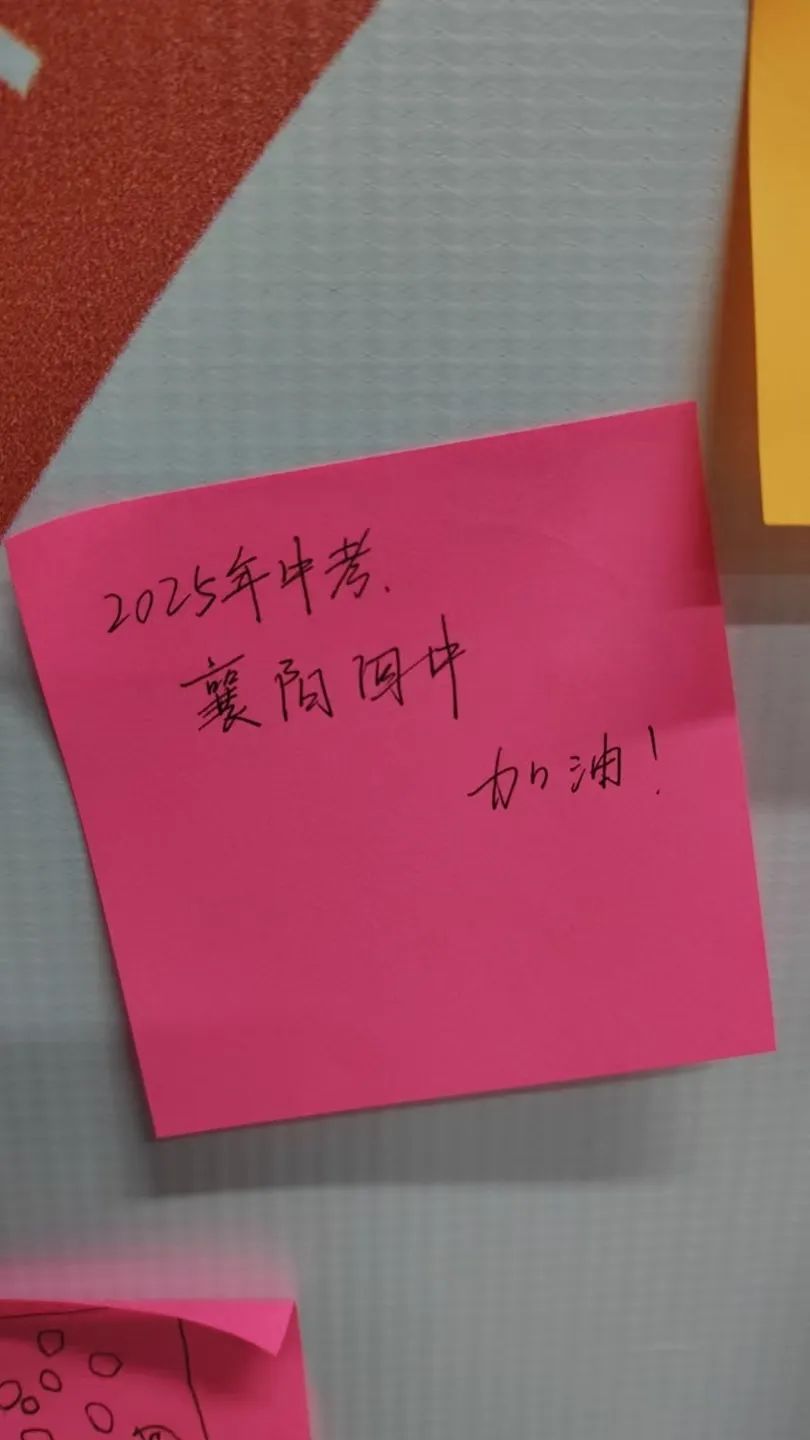 2025年中考.
襄阳四中
加油!